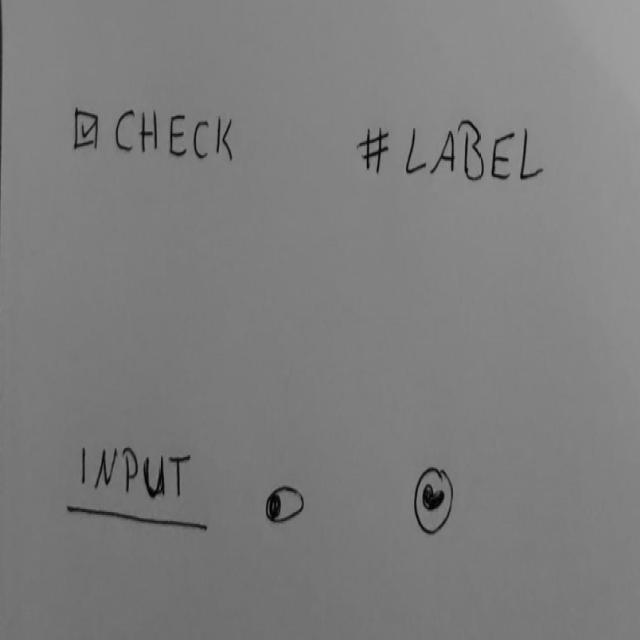 ☑ CHECK
# LABEL
INPUT